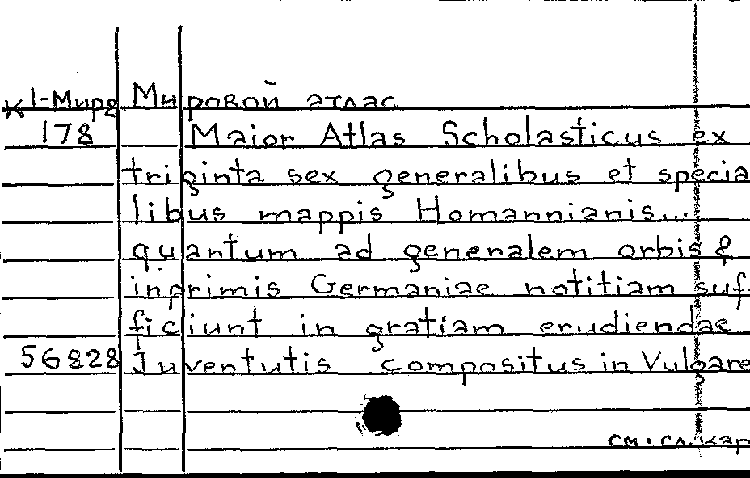 К 1-Мирв Мировой атлас
178 Maior Atlas Scholasticus ex
triginta sex generalibus et specia
libus mappis Homannianis...
quantum ad generalem orbis &
inprimis Germaniae notitiam suf-
ficiunt in gratiam erudiendae
56828 Juventutis compositus in Vulgare
см. сл. кар